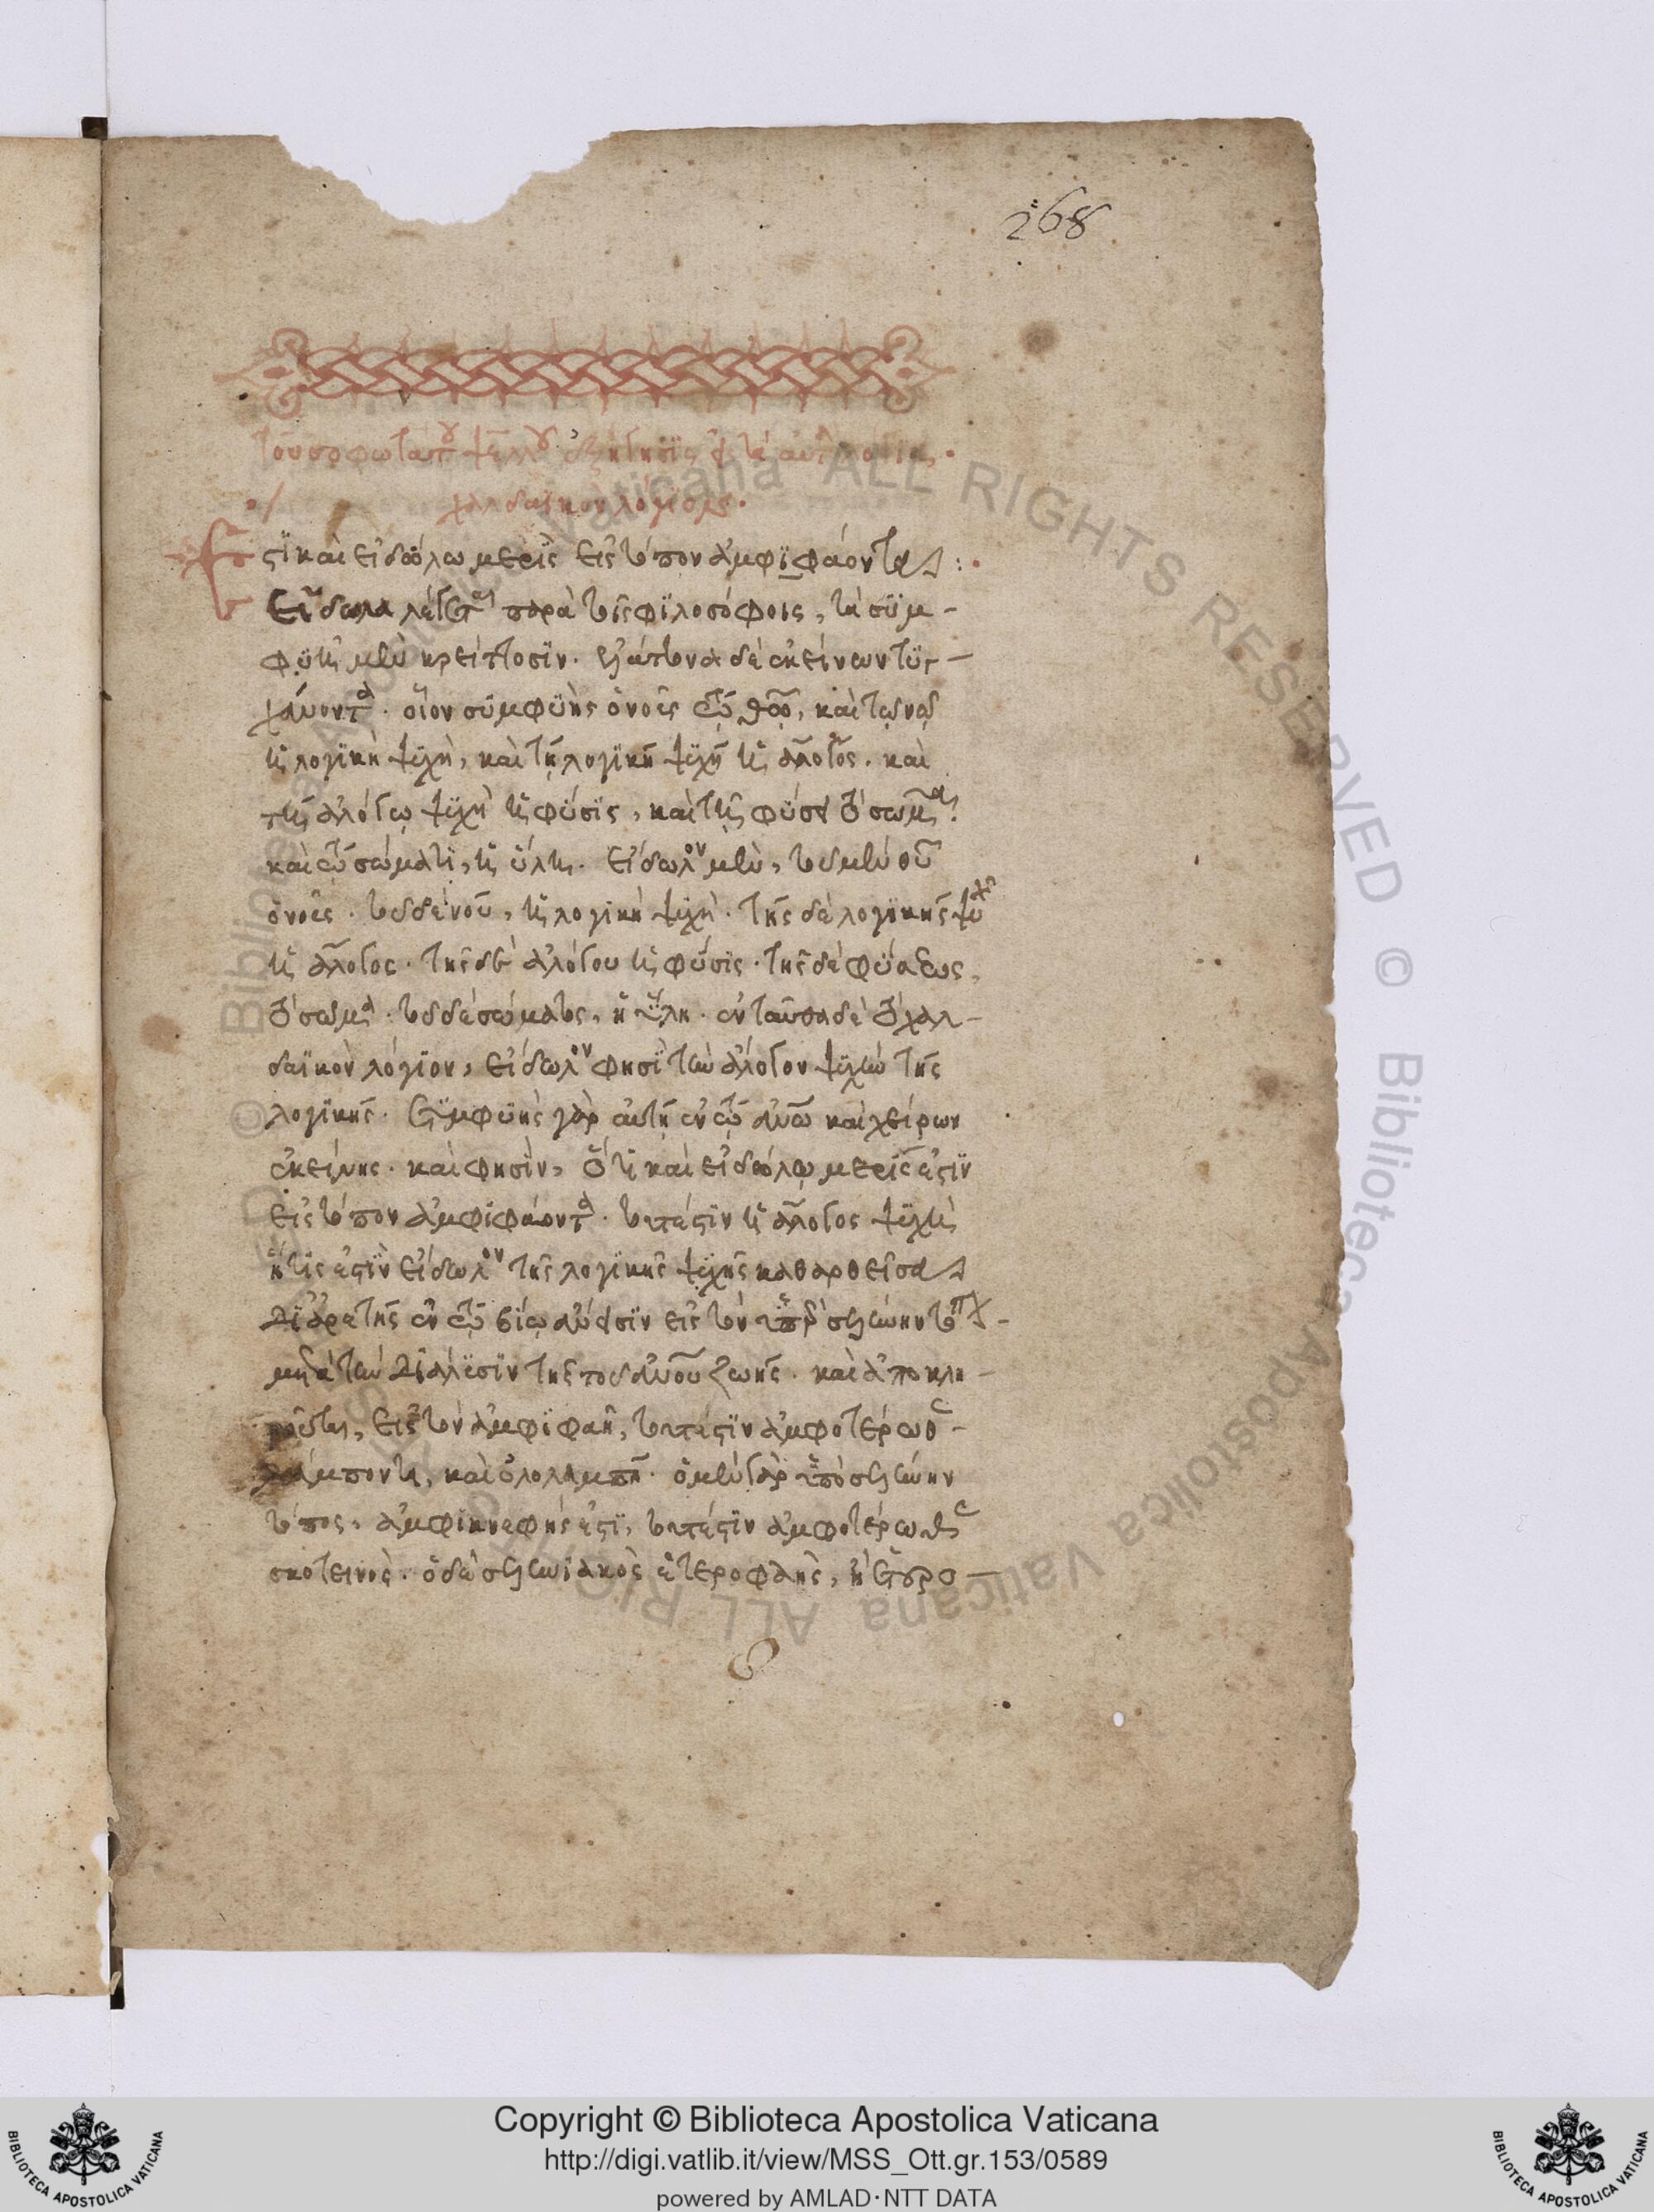 268
τοῦ σοφωτάτου ψελλοῦ ἐξήγησις εἰς τὰ αὐτὰ λόγια.
χαλδαϊκὸν λόγιον.
Ἔστι καὶ εἰδώλῳ μερὶς εἰς τόπον ἀμφιφάοντα:
Εἴδωλα λέγεται παρὰ τοῖς φιλοσόφοις, τὰ συμ-
φυῆ μὲν κρείττοσιν. ἐλάττονα δὲ ἐκείνων τυγ-
χάνοντα. οἷον συμφυὴς ὁ νοῦς τῷ θεῷ, καὶ τῷ νῷ
ἡ λογικὴ ψυχὴ, καὶ τῇ λογικῇ ψυχῇ ἡ ἄλογος. καὶ
τῇ ἀλόγῳ ψυχῇ ἡ φύσις, καὶ τῇ φύσει τὸ σῶμα.
καὶ τῷ σώματι, ἡ ὕλη. εἴδωλον μὲν, τοῦ μὲν θεοῦ
ὁ νοῦς. τοῦ δὲ νοῦ, ἡ λογικὴ ψυχὴ. τῆς δὲ λογικῆς ψυχῆς
ἡ ἄλογος. τῆς δὲ ἀλόγου ἡ φύσις. τῆς δὲ φύσεως,
τὸ σῶμα. τοῦ δὲ σώματος, ἡ ὕλη. ἐνταῦθα δὲ τὸ χαλ-
δαϊκὸν λόγιον, εἴδωλον φησὶ τὴν ἄλογον ψυχὴν τῆς
λογικῆς. συμφυὴς γὰρ αὐτῇ ἐν τῷ ἀνθρώπῳ καὶ χείρων
ἐκείνης. καὶ φησὶν, ὅτι καὶ εἰδώλῳ μερίς ἐστιν
εἰς τόπον ἀμφιφάοντα. τουτέστιν ἡ ἄλογος ψυχὴ
ἥτις ἐστὶν εἴδωλον τῆς λογικῆς ψυχῆς καθαρθεῖσα
δι' ἀρετῆς ἐν τῷ βίῳ ἄνεισιν εἰς τὸν ὑπὲρ σελήνην τόπον
μετὰ τὴν διάλυσιν τῆς τοῦ ἀνθρώπου ζωῆς. καὶ ἀποκλη-
ροῦται, εἰς τὸν ἀμφιφαῆ, τουτέστιν ἀμφοτέρωθεν
λάμποντα, καὶ ὁλολαμπῆ. ὁ μὲν γὰρ ὑπὸ σελήνην
τόπος, ἀμφικνεφής ἐστι, τουτέστιν ἀμφοτέρωθεν
σκοτεινὸς. ὁ δὲ σεληνιακὸς ἑτεροφαὴς, ἤγουν
Copyright © Biblioteca Apostolica Vaticana
http://digi.vatlib.it/view/MSS_Ott.gr.153/0589
powered by AMLAD·NTT DATA